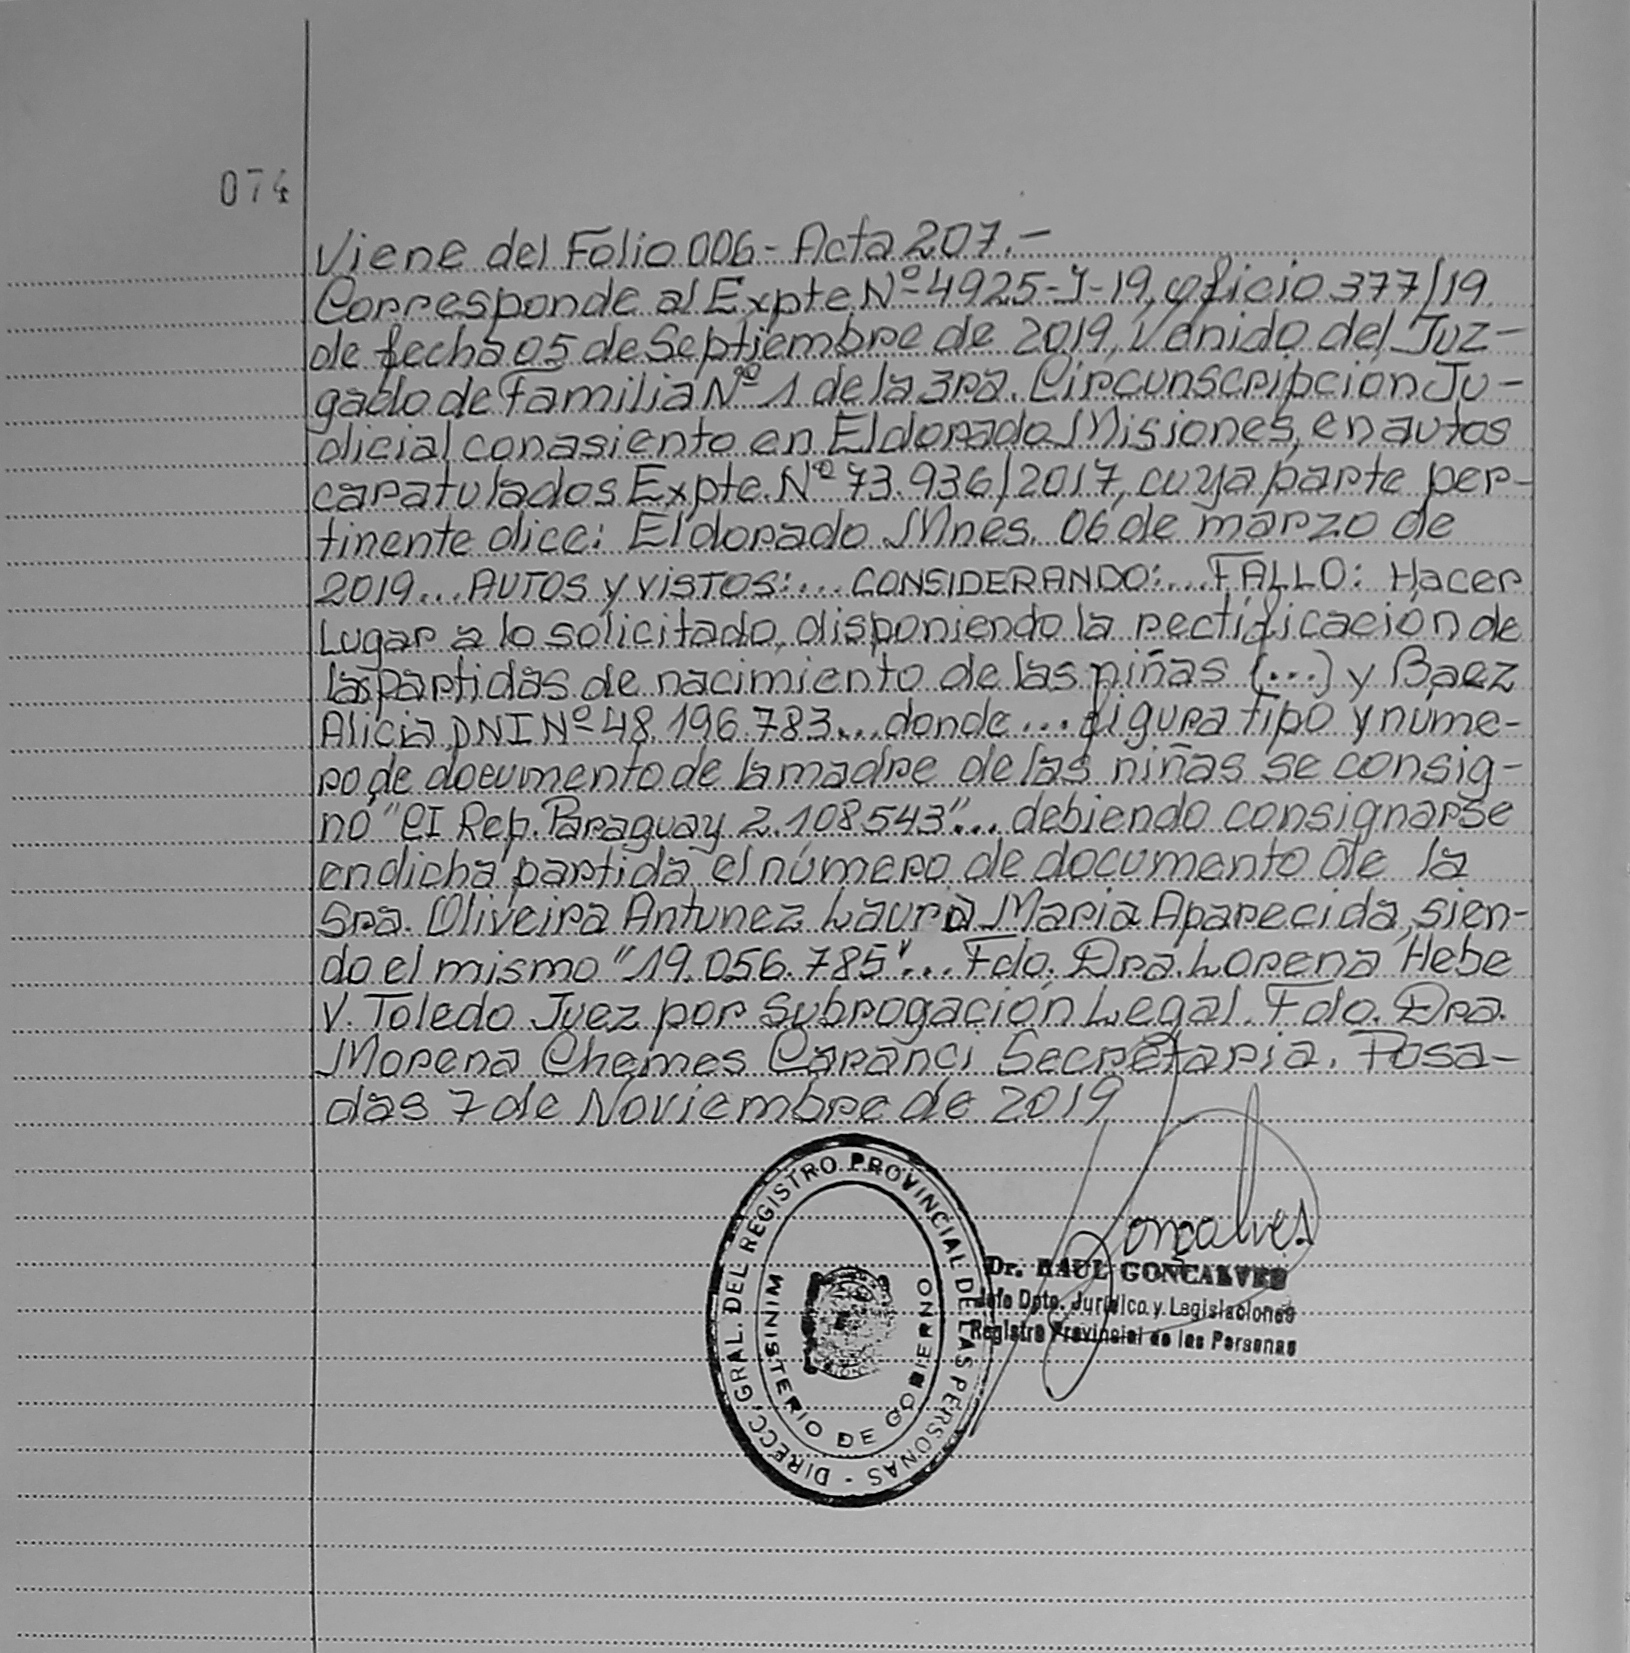 074
Viene del Folio 006 - Acta 207.-
Corresponde al Expte. Nº 4925-J-19, oficio 377/19
de fecha 05 de Septiembre de 2019, Venido del Juz-
gado de Familia Nº 1 de la 3ra. Circunscripcion Ju-
dicial con asiento en Eldorado Misiones, en autos
caratulados Expte. Nº 73.936/2017, cuya parte per-
tinente dice: Eldorado Mnes. 06 de marzo de
2019... AUTOS Y VISTOS:... CONSIDERANDO:... FALLO: Hacer
Lugar a lo solicitado, disponiendo la rectificación de
las partidas de nacimiento de las niñas (...) y Baez
Alicia DNI Nº 48.196.783... donde... figura tipo y nume-
ro de documento de la madre de las niñas se consig-
nó "CI Rep. Paraguay 2.108543"... debiendo consignarse
en dicha partida el número de documento de la
Sra. Oliveira Antunez Laura Maria Aparecida, sien-
do el mismo "19.056.785"... Fdo. Dra. Lorena Hebe
V. Toledo Juez por Subrogación Legal. Fdo. Dra.
Morena Chemes Caranci Secretaria. Posa-
das 7 de Noviembre de 2019
DIRECC. GRAL. DEL REGISTRO PROVINCIAL DE LAS PERSONAS -
MINISTERIO DE GOBIERNO
Goncalves
Dr. RAUL GONCALVES
Jefe Dpto. Jurídico y Legislaciones
Registro Provincial de las Personas